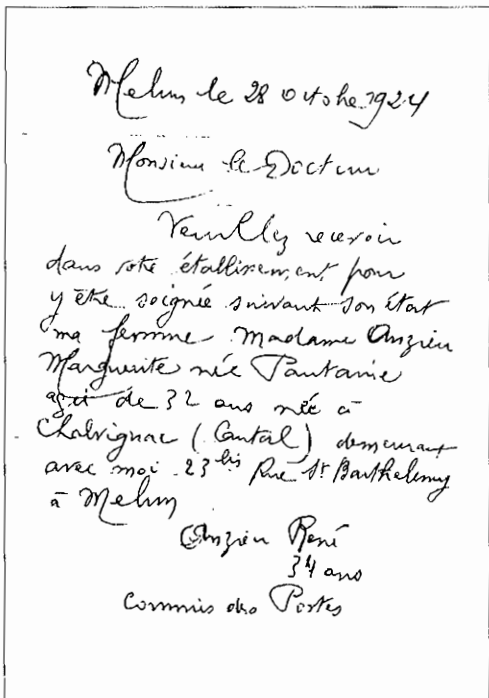 Melun le 28 octobre 1924
Monsieur le Docteur
Veuillez recevoir
dans votre établissement pour
y être soignée suivant son état
ma femme Madame Anzieu
Marguerite née Pantaine
agée de 32 ans née à
Chalvignac (Cantal) demeurant
avec moi 23 bis Rue St Barthelemy
à Melun
Anzieu René
34 ans
Commis des Postes